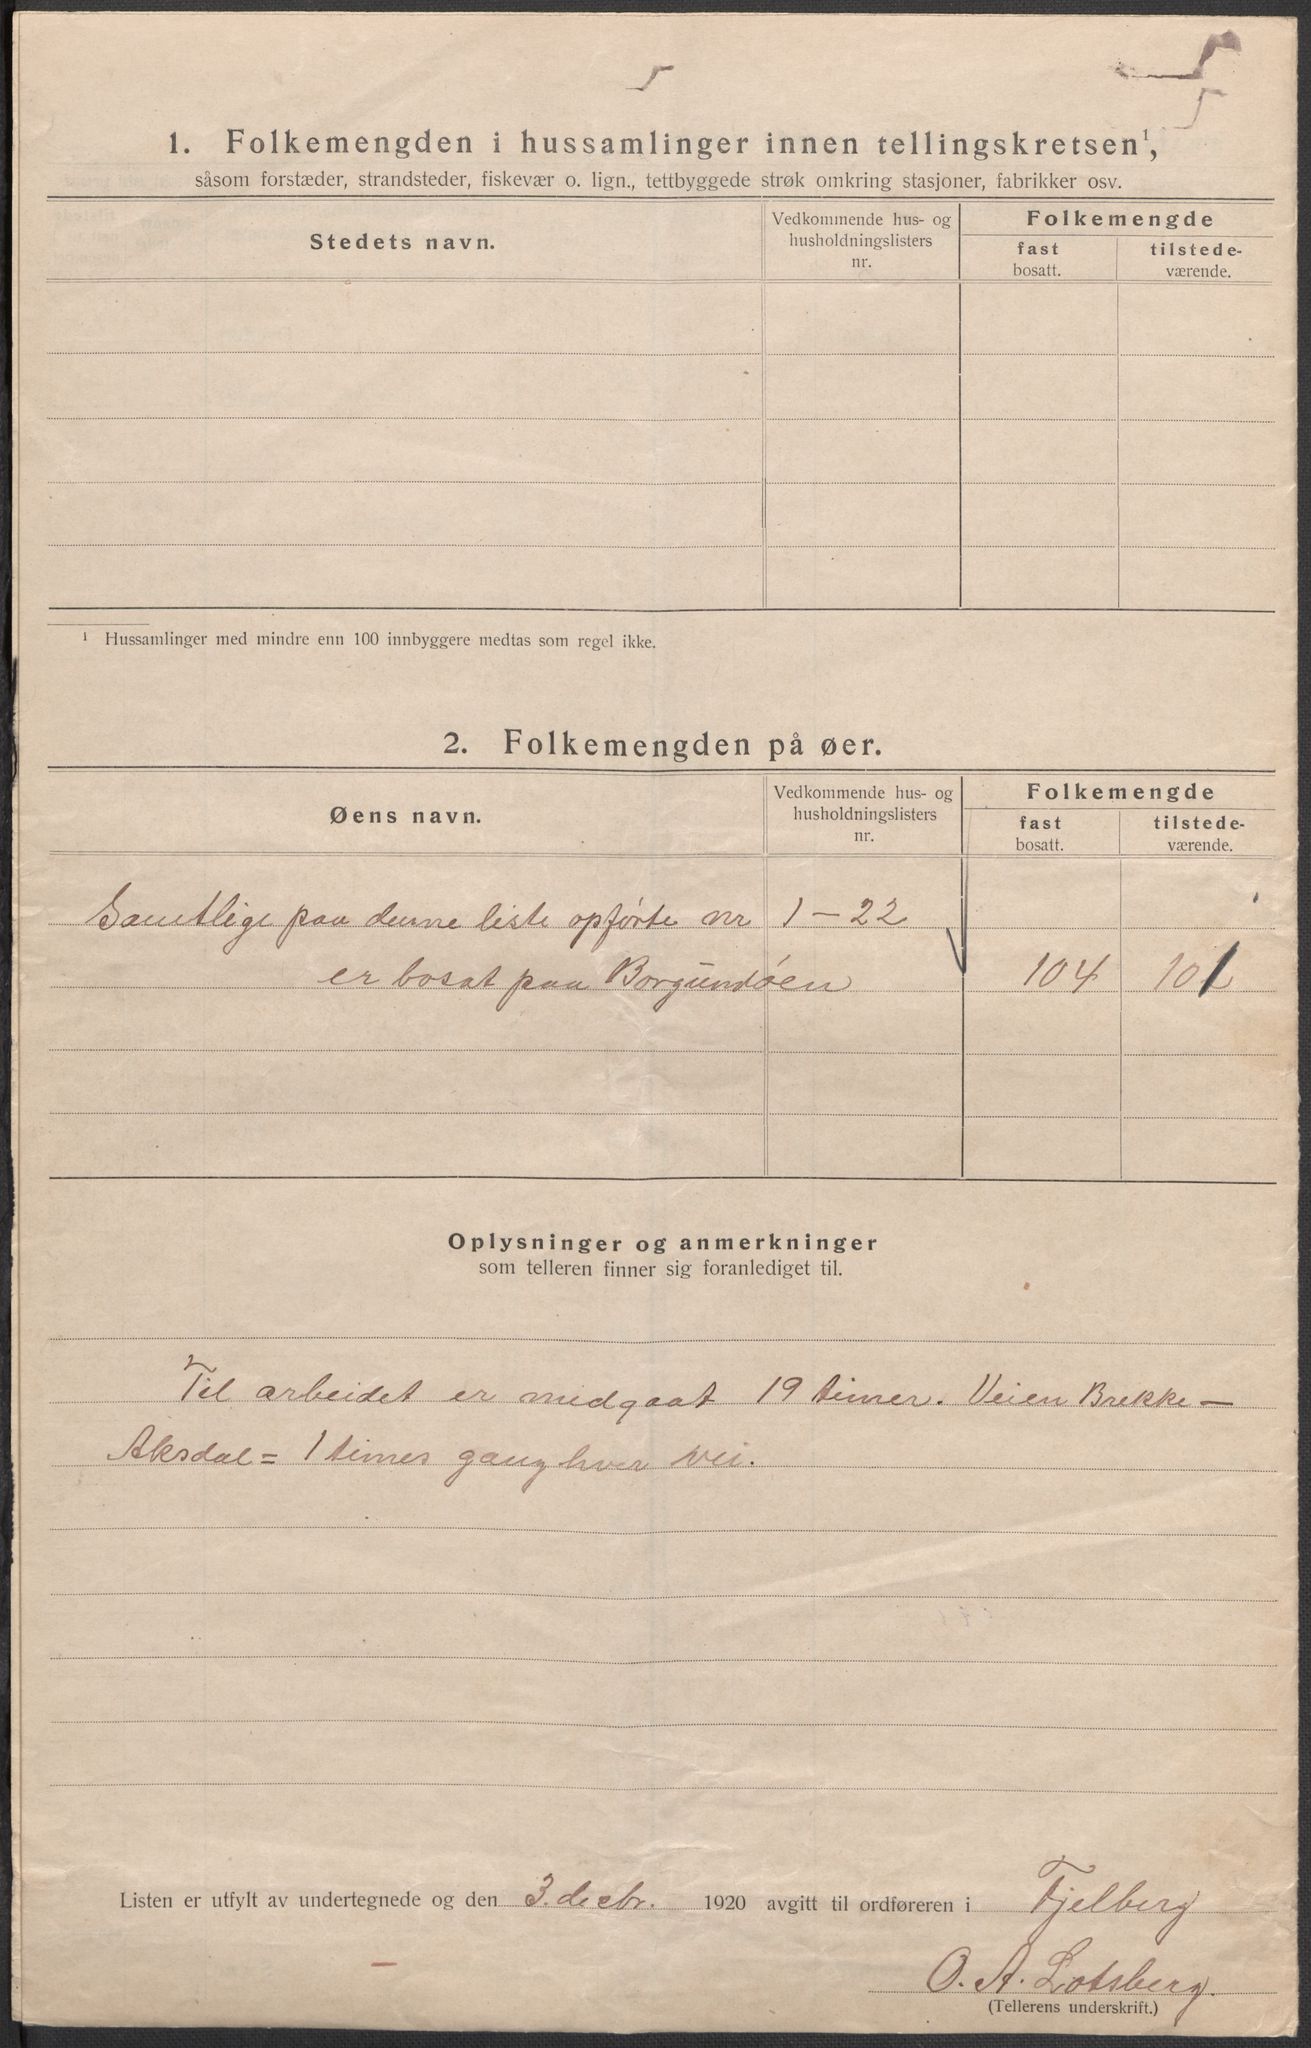 5
5
5
1. Folkemengden i hussamlinger innen tellingskretsen¹,
såsom forstæder, strandsteder, fiskevær o. lign., tettbyggede strøk omkring stasjoner, fabrikker osv.
Stedets navn.
Vedkommende hus- og husholdningslisters nr.
Folkemengde
fast bosatt.
tilstede-værende.
¹ Hussamlinger med mindre enn 100 innbyggere medtas som regel ikke.
2. Folkemengden på øer.
Øens navn.
Vedkommende hus- og husholdningslisters nr.
Folkemengde
fast bosatt.
tilstede-værende.
Samtlige paa denne liste opførte nr 1-22
er bosat paa Borgundøen 104 101
Oplysninger og anmerkninger
som telleren finner sig foranlediget til.
Til arbeidet er medgaat 19 timer. Veien Brekke-
Aksdal = 1 times gang hver vei.
Listen er utfylt av undertegnede og den 3. decbr. 1920 avgitt til ordføreren i Fjelberg
O. A. Lotsberg.
(Tellerens underskrift.)